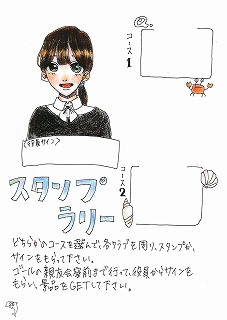 コース1
〈役員サイン〉
コース2
スタンプ
ラリー
どちらかのコースを選んで、各クラブを周り、スタンプか、
サインをもらって下さい。
ゴールの親友会館前まで行って、役員からサインを
もらい、景品をGETして下さい。